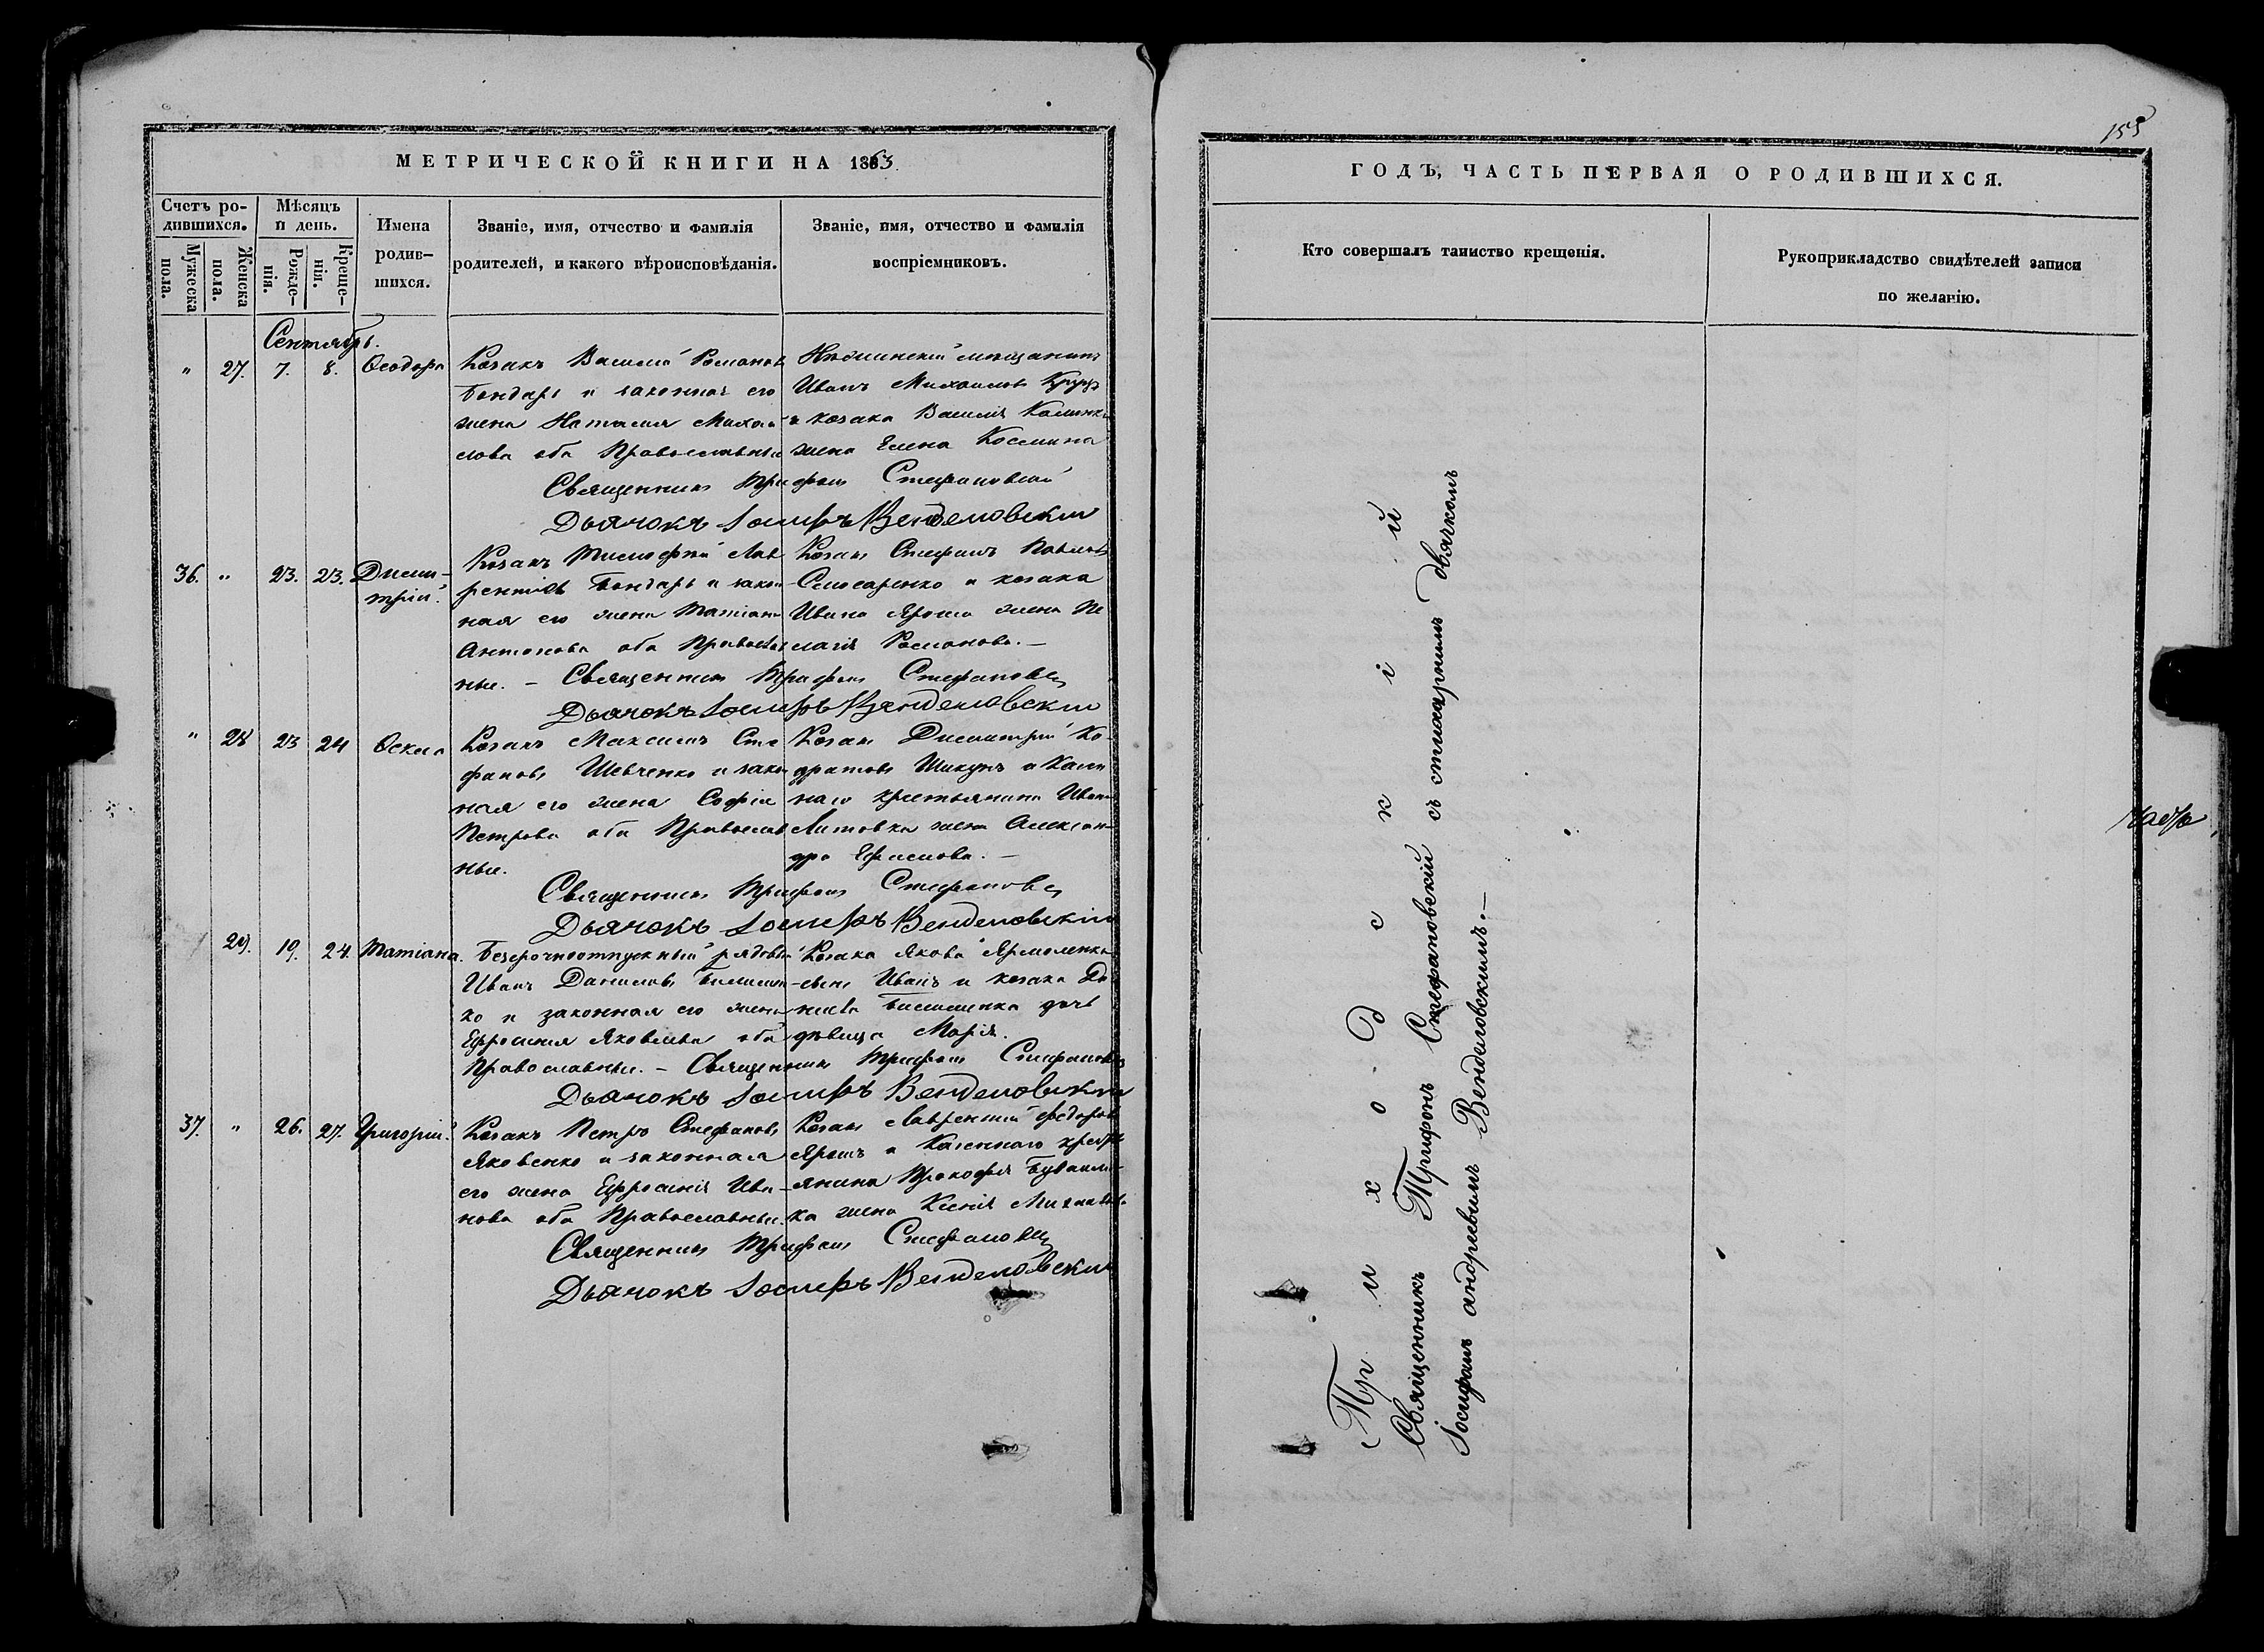 МЕТРИЧЕСКОЙ КНИГИ НА 1863.
Счетъ родившихся.
Мужеска пола.
Женска пола.
Мѣсяцъ и день.
Рожденія.
Крещенія.
Имена родившихся.
Званіе, имя, отчество и фамилія
родителей, и какого вѣроисповѣданія.
Званіе, имя, отчество и фамилія
воспріемниковъ.
Сентябрь.
" 27. 7. 8. Ѳеодора
Козакъ Василій Романовъ
Бондарь и законная его
жена Наталия Михаи-
лова оба Православные
мещанинъ
Иванъ Михаиловъ
и козака Василія
жена Елена Космина
Священникъ Трифонъ Стефановскій
Дьячокъ Іосифъ Венделовскій
36. " 23. 23. Дими-
трій.
Козакъ Тимофей Лав
рентіевъ Бондарь и закон-
ная его жена Татіана
Антонова оба Православ
ные. –
Козакъ Стефанъ Павловъ
Слюсаренко и козака
Ивана Яроша жена Пе
лагія Романова. –
Священникъ Трифонъ Стефановскій
Дьячокъ Іосифъ Венделовскій
" 28 23 24 Ѳекла
Козакъ Максимъ Сте
фановъ Шевченко и закон
ная его жена Софія
Петрова оба Православ
ные.
Козакъ Димитрій Ко-
дратовъ Шикунъ и Казен
наго крестьянина Ивана
Литовка жена Алексан-
дра Ефимова. –
Священникъ Трифонъ Стефановскій
Дьячокъ Іосифъ Венделовскій
29. 19. 24. Татіана.
Безсрочноотпускный рядовый
Иванъ Даниловъ
ко и законная его жена
Ефросинія Яковлева оба
Православные. –
Козака Якова Ярмоленка
сынъ Иванъ и козака Да
нила дочь
дѣвица Марія.
Священникъ Трифонъ Стефановскій
Дьячокъ Іосифъ Венделовскій
37. " 26. 27. Григорій.
Козакъ Петръ Стефановъ
Яковенко и законная
его жена Ефросинія Ива-
нова оба Православные.
Козакъ Лаврентій Федоровъ
Ярошъ и Казеннаго кресть
янина Прокофія
ка жена Ксенія Михаилова
Священникъ Трифонъ Стефановскій
Дьячокъ Іосифъ Венделовскій
155
ГОДЪ, ЧАСТЬ ПЕРВАЯ О РОДИВШИХСЯ.
Кто совершалъ таинство крещенія.
Рукоприкладство свидѣтелей записи
по желанію.
Приходскій
Священникъ Трифонъ Стефановскій съ стихарнымъ дьячкомъ
Іосифомъ андреевымъ Венделовскимъ. –